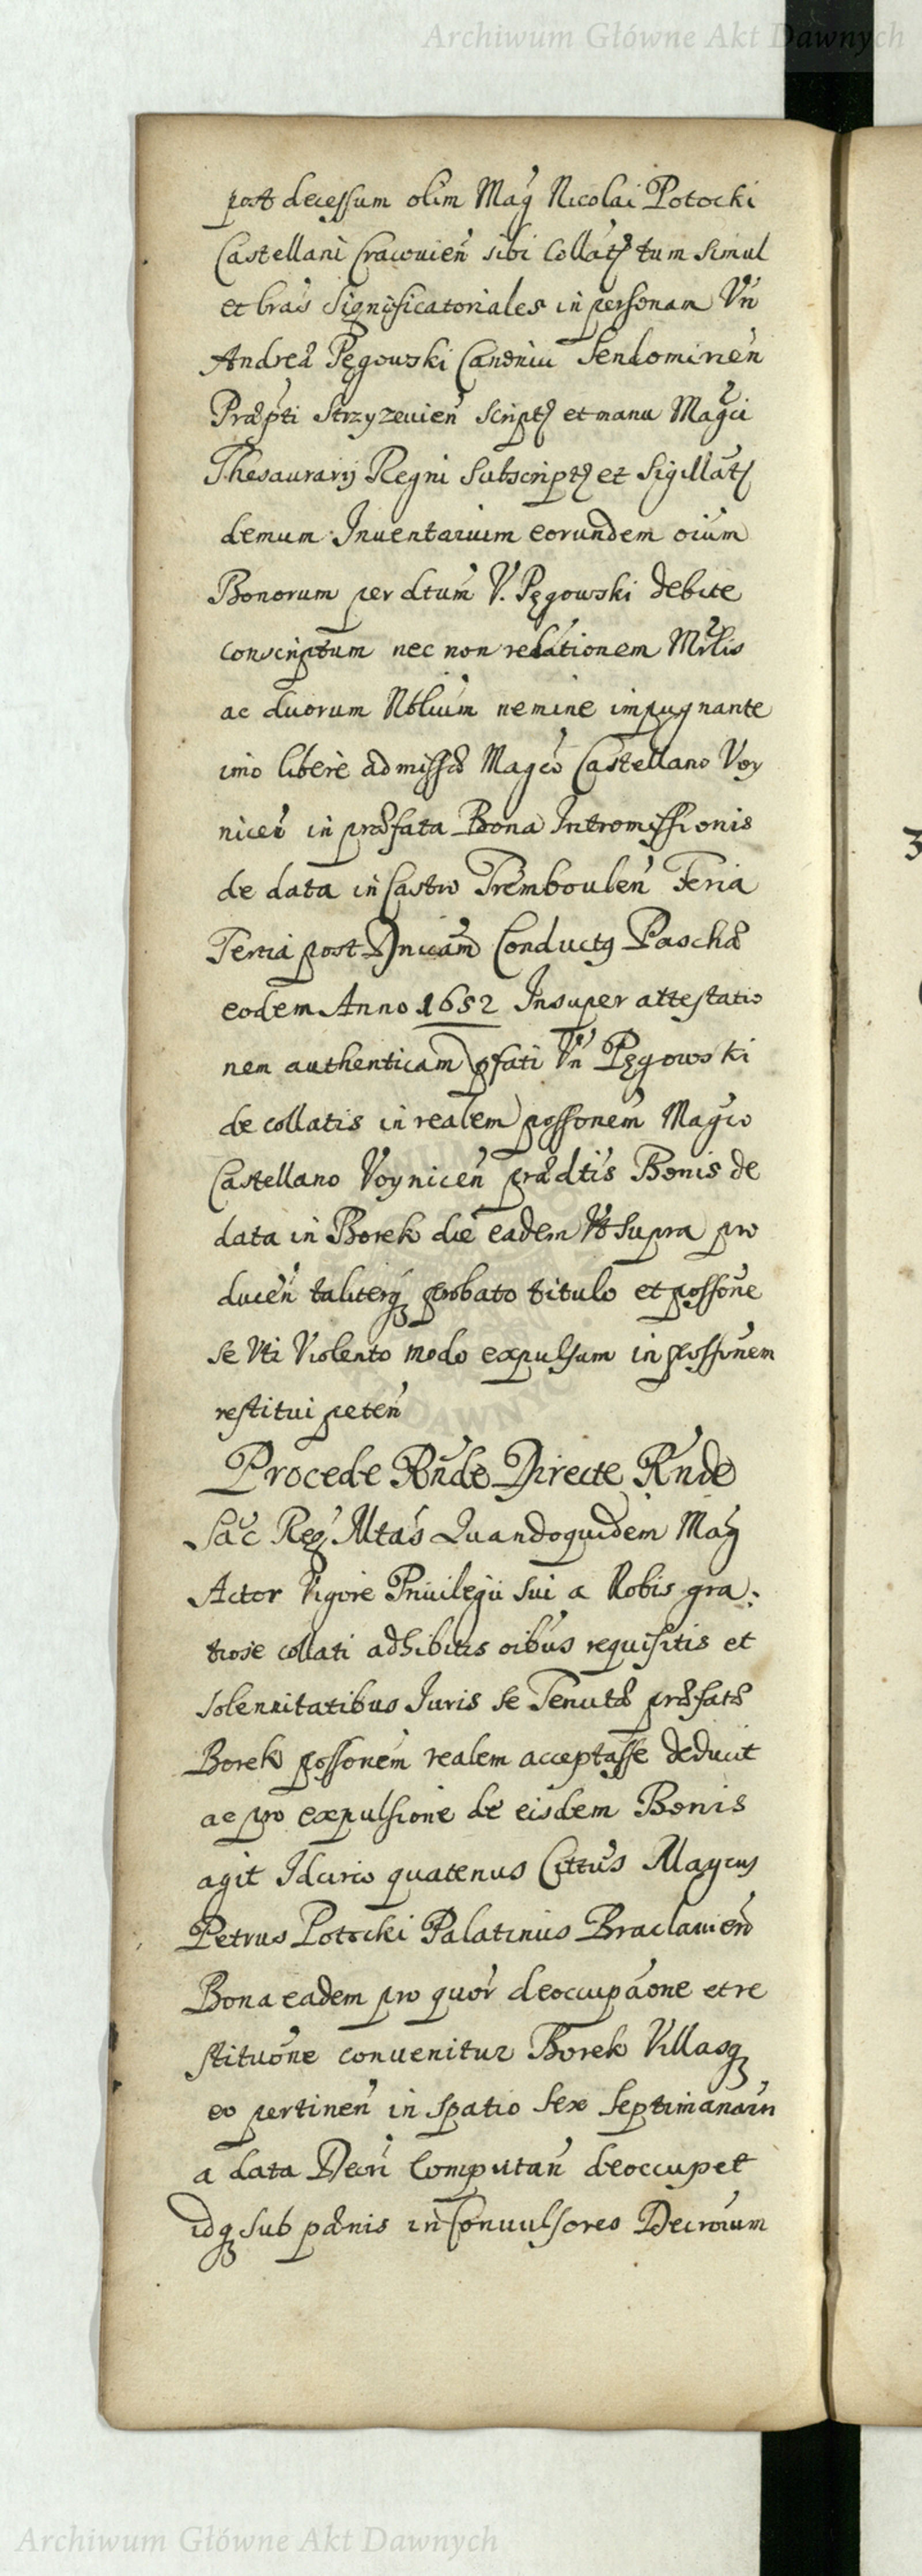 Archiwum Główne Akt Dawnych
post decessum olim Mag Nicolai Potocki
Castellani Cracouień sibi Collat tum simul
et lras significatoriales in personam Vn
Andreæ Pęgowski Canonici Sendomirień
Præpti Strzyzeuień script et manu Magci
Thesaurarij Regni Subscript et Sigillat
demum Inuentarium eorundem oium
Bonorum per dtum V. Pęgowski debite
conscriptum nec non relationem Mrlis
ac duorum Nblium nemine impugnante
imo liberè admissæ Magco Castellano Voy
niceń in præfata Bona Intromissionis
de data in Castro Trembouleń Feria
Tertia post Dnicam Conductq Paschæ
eodem Anno 1652 Insuper attestatio
nem authenticam pfati Vn Pęgowski
de collatis in realem possonem Magco
Castellano Voyniceń prædtis Bonis de
data in Borek die eadem Vt supra pro
duceń taliterq probato titulo et possone
se Vti Violento modo expulsum in possonem
restitui peteń
Procede Rnde Directe Rnde
Sac Reg Mtas Quandoquidem Mag
Actor Vigore Priuilegii sui a Nobis gra:
tiose collati adhibitis oibus requisitis et
solennitatibus Iuris se Tenutæ præfatæ
Borek possonem realem acceptasse deducit
ac pro expulsione de eisdem Bonis
agit Idcirco quatenus Cittus Magcus
Petrus Potocki Palatinus Braclauień
Bona eadem pro quor deoccupaone et re
stituone conuenitur Borek Villasq
eo pertineń in spatio sex septimanarum
a data Decri Computań deoccupet
idq sub pœnis in Conuulsores Decroum
3
Archiwum Główne Akt Dawnych